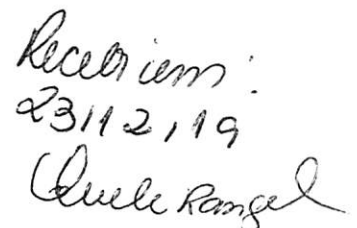 Recebi em:
23/12/19
Quele Rangel